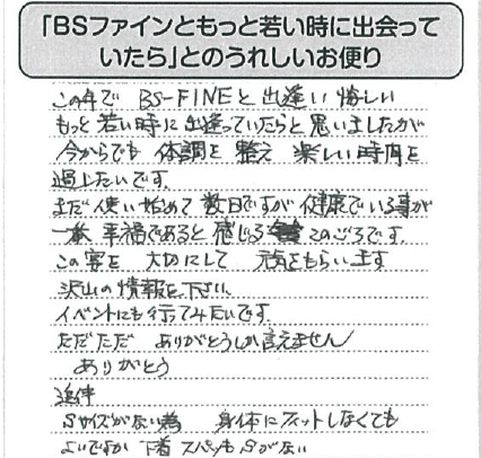 「BSファインともっと若い時に出会って
いたら」とのうれしいお便り
この年で BS-FINEと出逢い 悔しい
もっと若い時に出逢っていたらと思いましたが
今からでも 体調を整え 楽しい時間を
過したいです.
まだ使い始めて 数日ですが 健康でいる事が
一番 幸福であると感じる このごろです.
この宝を 大切にして 元気をもらいます
沢山の情報を下さい.
イベントにも行ってみたいです.
ただただ ありがとうしか言えません
ありがとう
追伸
Sサイズがない為 身体にフィットしなくても
よいですか 下着 スパッツも Sがない